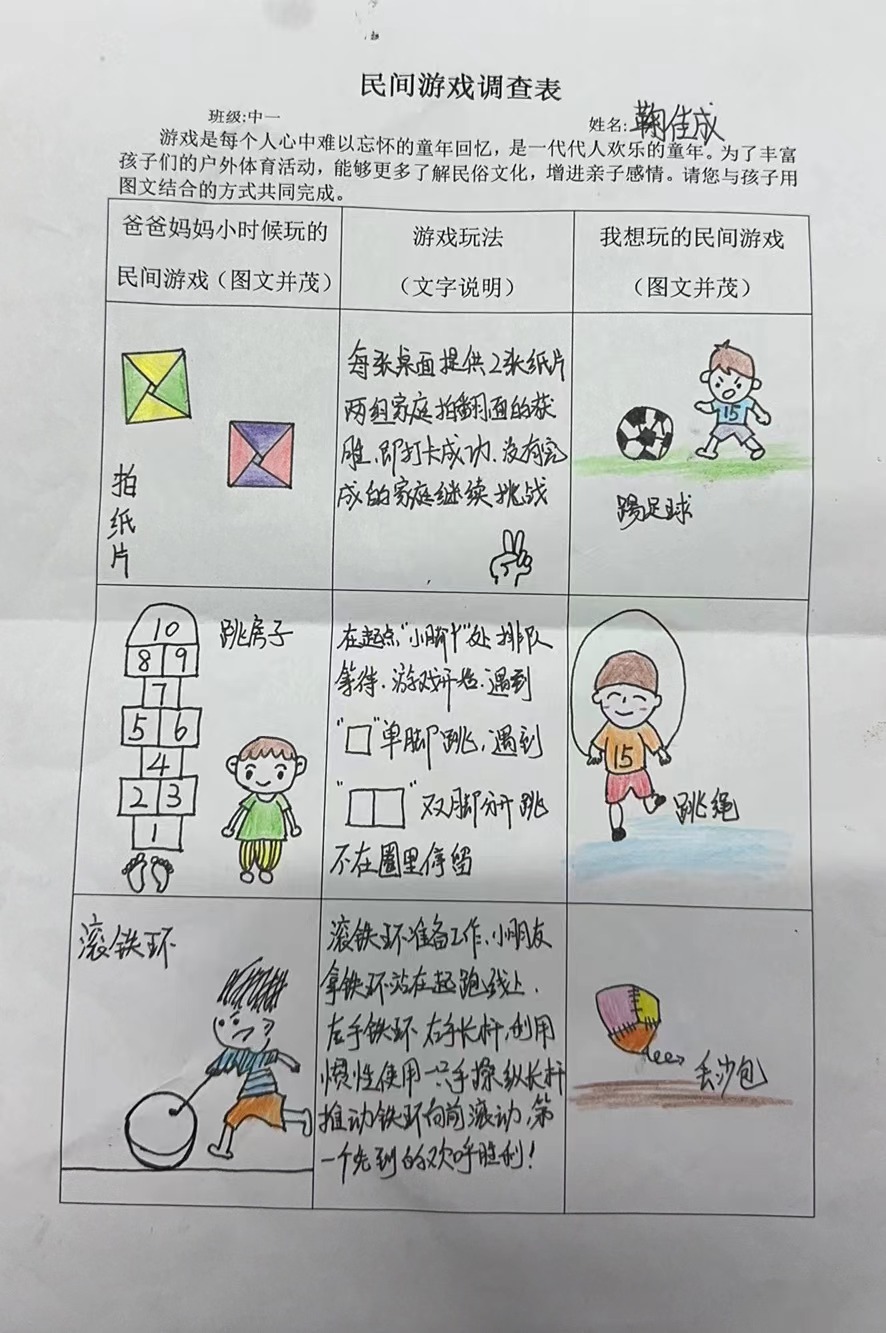 民间游戏调查表
班级:中一
姓名:鞠佳成
游戏是每个人心中难以忘怀的童年回忆，是一代代人欢乐的童年。为了丰富
孩子们的户外体育活动，能够更多了解民俗文化，增进亲子感情。请您与孩子用
图文结合的方式共同完成。
爸爸妈妈小时候玩的
民间游戏（图文并茂）
游戏玩法
（文字说明）
我想玩的民间游戏
（图文并茂）
拍
纸
片
每张桌面提供2张纸片
两组家庭拍翻面的获
胜、即打卡成功、没有完
成的家庭继续挑战
15
踢足球
跳房子
10
8 9
7
5 6
4
2 3
1
在起点“小脚丫”处排队
等待、游戏开始、遇到
“□”单脚跳，遇到
“□□”双脚分开跳
不在圈里停留
15
跳绳
滚铁环
滚铁环准备工作、小朋友
拿铁环站在起跑线上、
左手铁环 右手长杆，利用
惯性使用一只手操纵长杆
推动铁环向前滚动，第
一个先到的欢呼胜利！
丢沙包